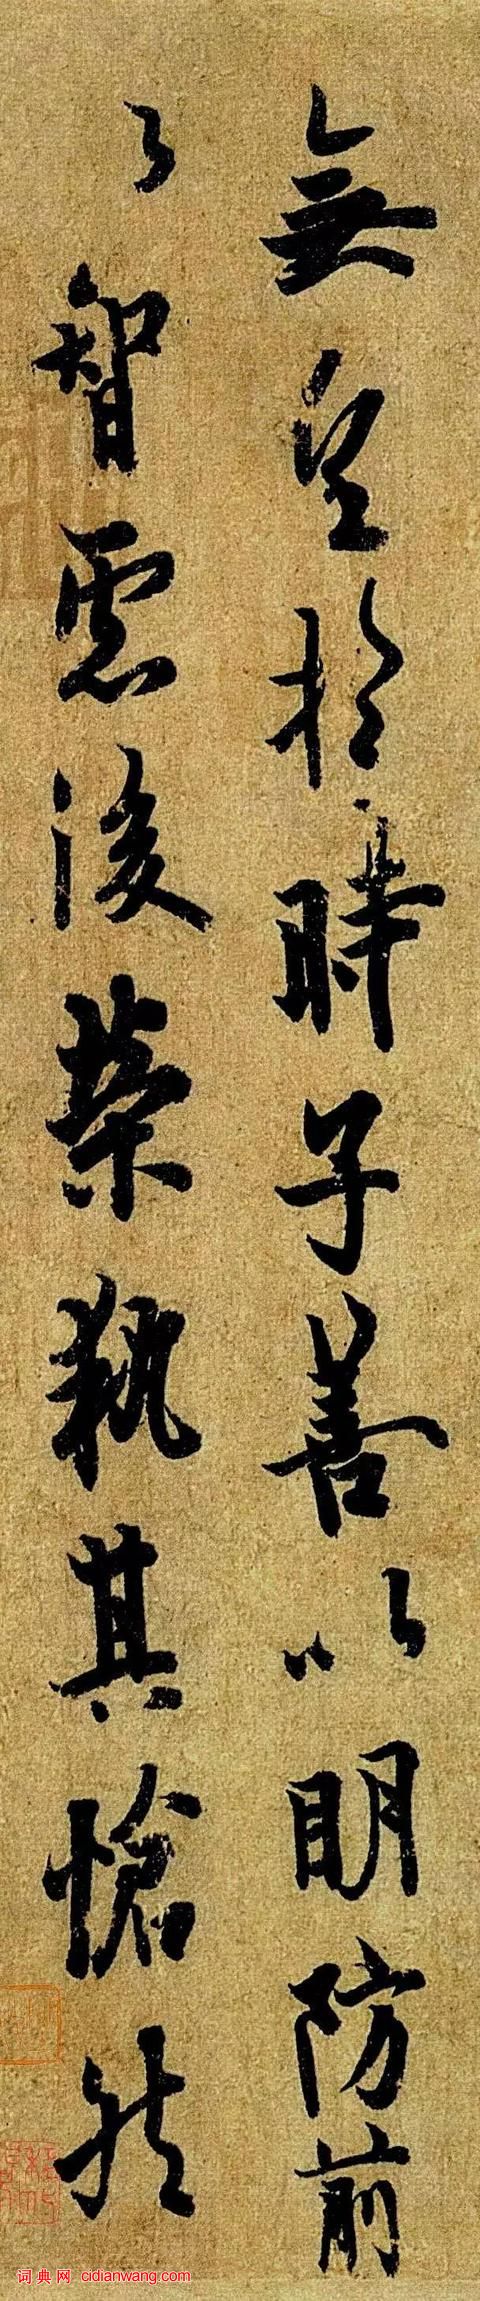 無於時子善以明防前
之智慮後榮孰其愴然
词典网 cidianwang.com